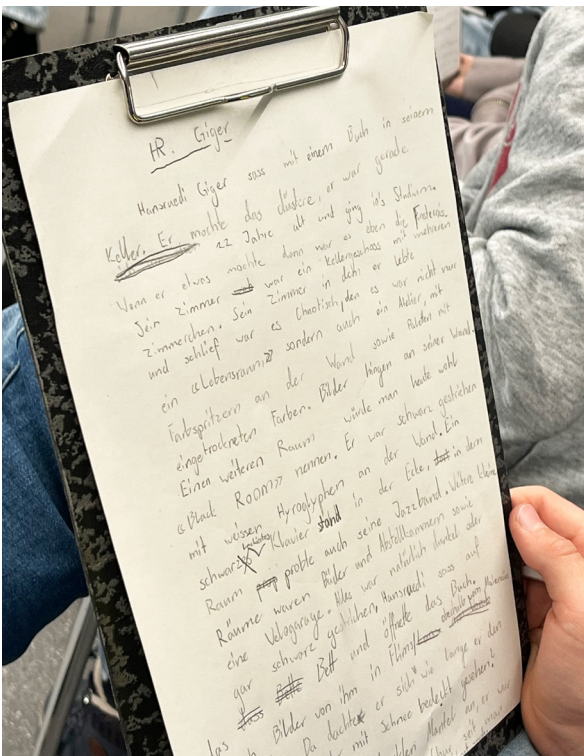 HR. Giger
Hansruedi Giger sass mit einem Buch in seinem
Keller. Er mochte das düstere, er war gerade
22 Jahre alt und ging in's Studium.
Wenn er etwas mochte dann war es eben die
Sein Zimmer war ein Kellergeschoss mit mehreren
Zimmerchen. Sein Zimmer in dem er lebte
und schlief war es Chaotisch, den es war nicht nur
ein «Lebensraum» sondern auch ein Atelier, mit
Farbspritzern an der Wand sowie Paletten mit
eingetrockneten Farben. Bilder hingen an seiner Wand.
Einen weiteren Raum würde man heute wohl
«Black Room» nennen. Er war schwarz gestrichen
mit weissen Hyroglyphen an der Wand. Ein
schwarz Klavier stand in der Ecke, in dem
Raum probte auch seine Jazzband. Weitere kleine
Räume waren Bäder und Abstellkammern sowie
eine Velogarage. Alles war natürlich dunkel oder
gar schwarz gestrichen. Hansruedi sass auf
Bett und öffnete das Buch,
das Bilder von ihm in Flims
Da dachte er sich wie lange er den
mit schnee bedeckt gesehen?
Mantel an, er war
seit man